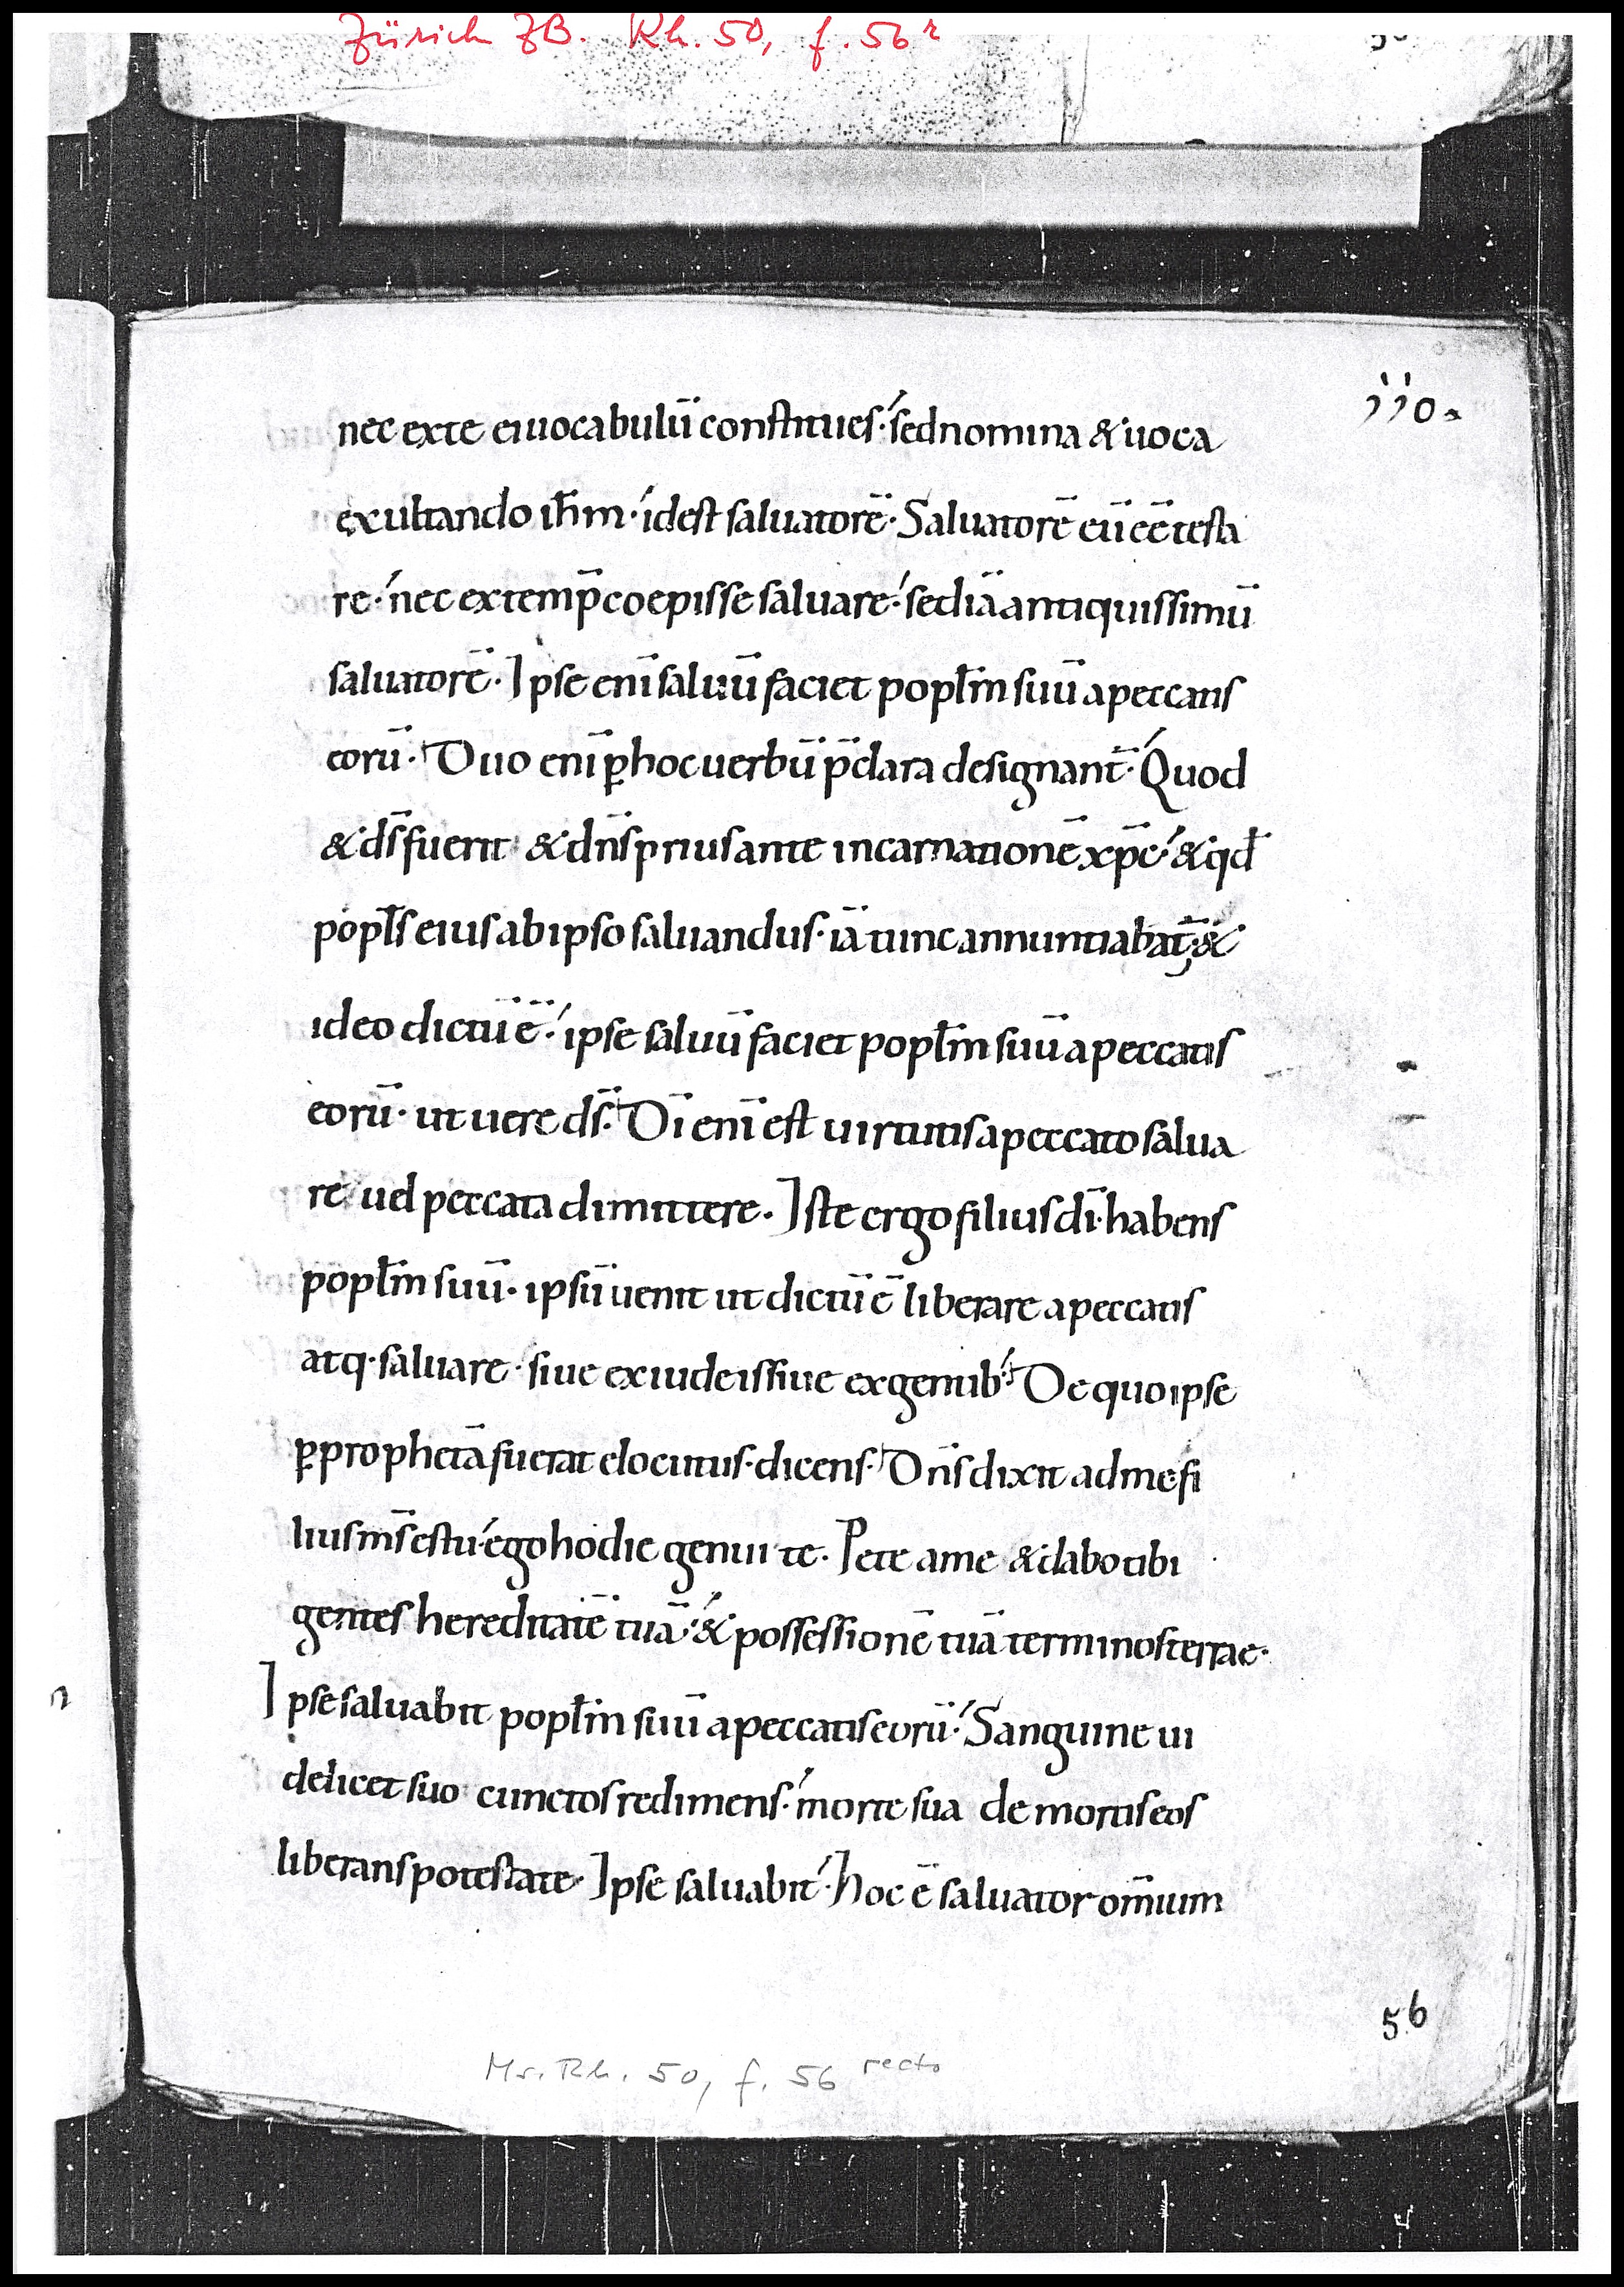 Zürich ZB. Rh. 50, f. 56r
110
nec ex te ei uocabulū constitues· sed nomina & uoca
exultando ih̄m· id est saluatorē· Saluatorē eū eē testa
re· nec ex temp̄ coepisse saluare· sed iā antiquissimū
saluatorē· Ipse enī saluū faciet popl̄m suū a peccatis
eorū· Duo enī ꝑ hoc uerbū p̄clara designant̄· Quod
& ds̄ fuerit· & dn̄s prius ante incarnationē xp̄ē· & qd̄
popl̄s eius ab ipso saluandus· iā tunc annuntiabat̄; &
ideo dictū ē· ipse saluū faciet popl̄m suū a peccatis
eorū· ut uere ds̄· Dī enī est uirtutis a peccato salua
re uel peccata dimittere· Iste ergo filius dī· habens
popl̄m suū· ipsū uenit ut dictū ē liberare a peccatis
atq· saluare· siue ex iudeis siue ex gentib· De quo ipse
ꝑ prophetā fuerat elocutus· dicens· Dn̄s dixit ad me fi
lius ms̄ es tu· ego hodie genui te· Pete a me & dabo tibi
gentes hereditatē tuā· & possessionē tuā terminos terrae·
Ipse saluabit popl̄m suū a peccatis eorū· Sanguine ui
delicet suo cunctos redimens· morte sua de mortis eos
liberans potestate· Ipse saluabit· Hoc ē saluator om̄ium
56
Ms. Rh. 50, f. 56 recto